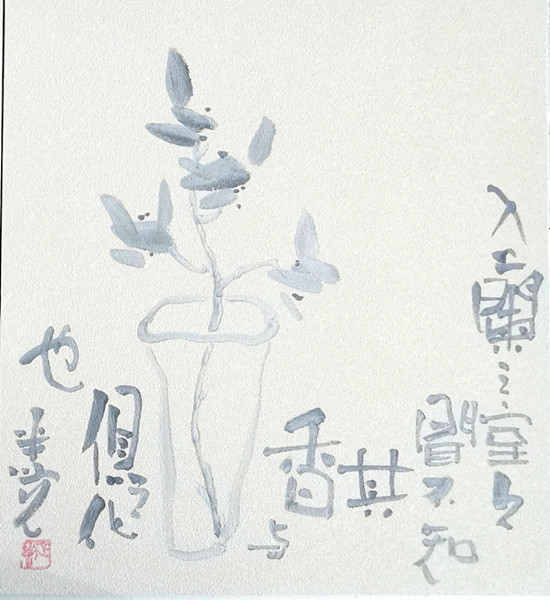 入蘭之室久
不知
其
香
与
俱之化
也